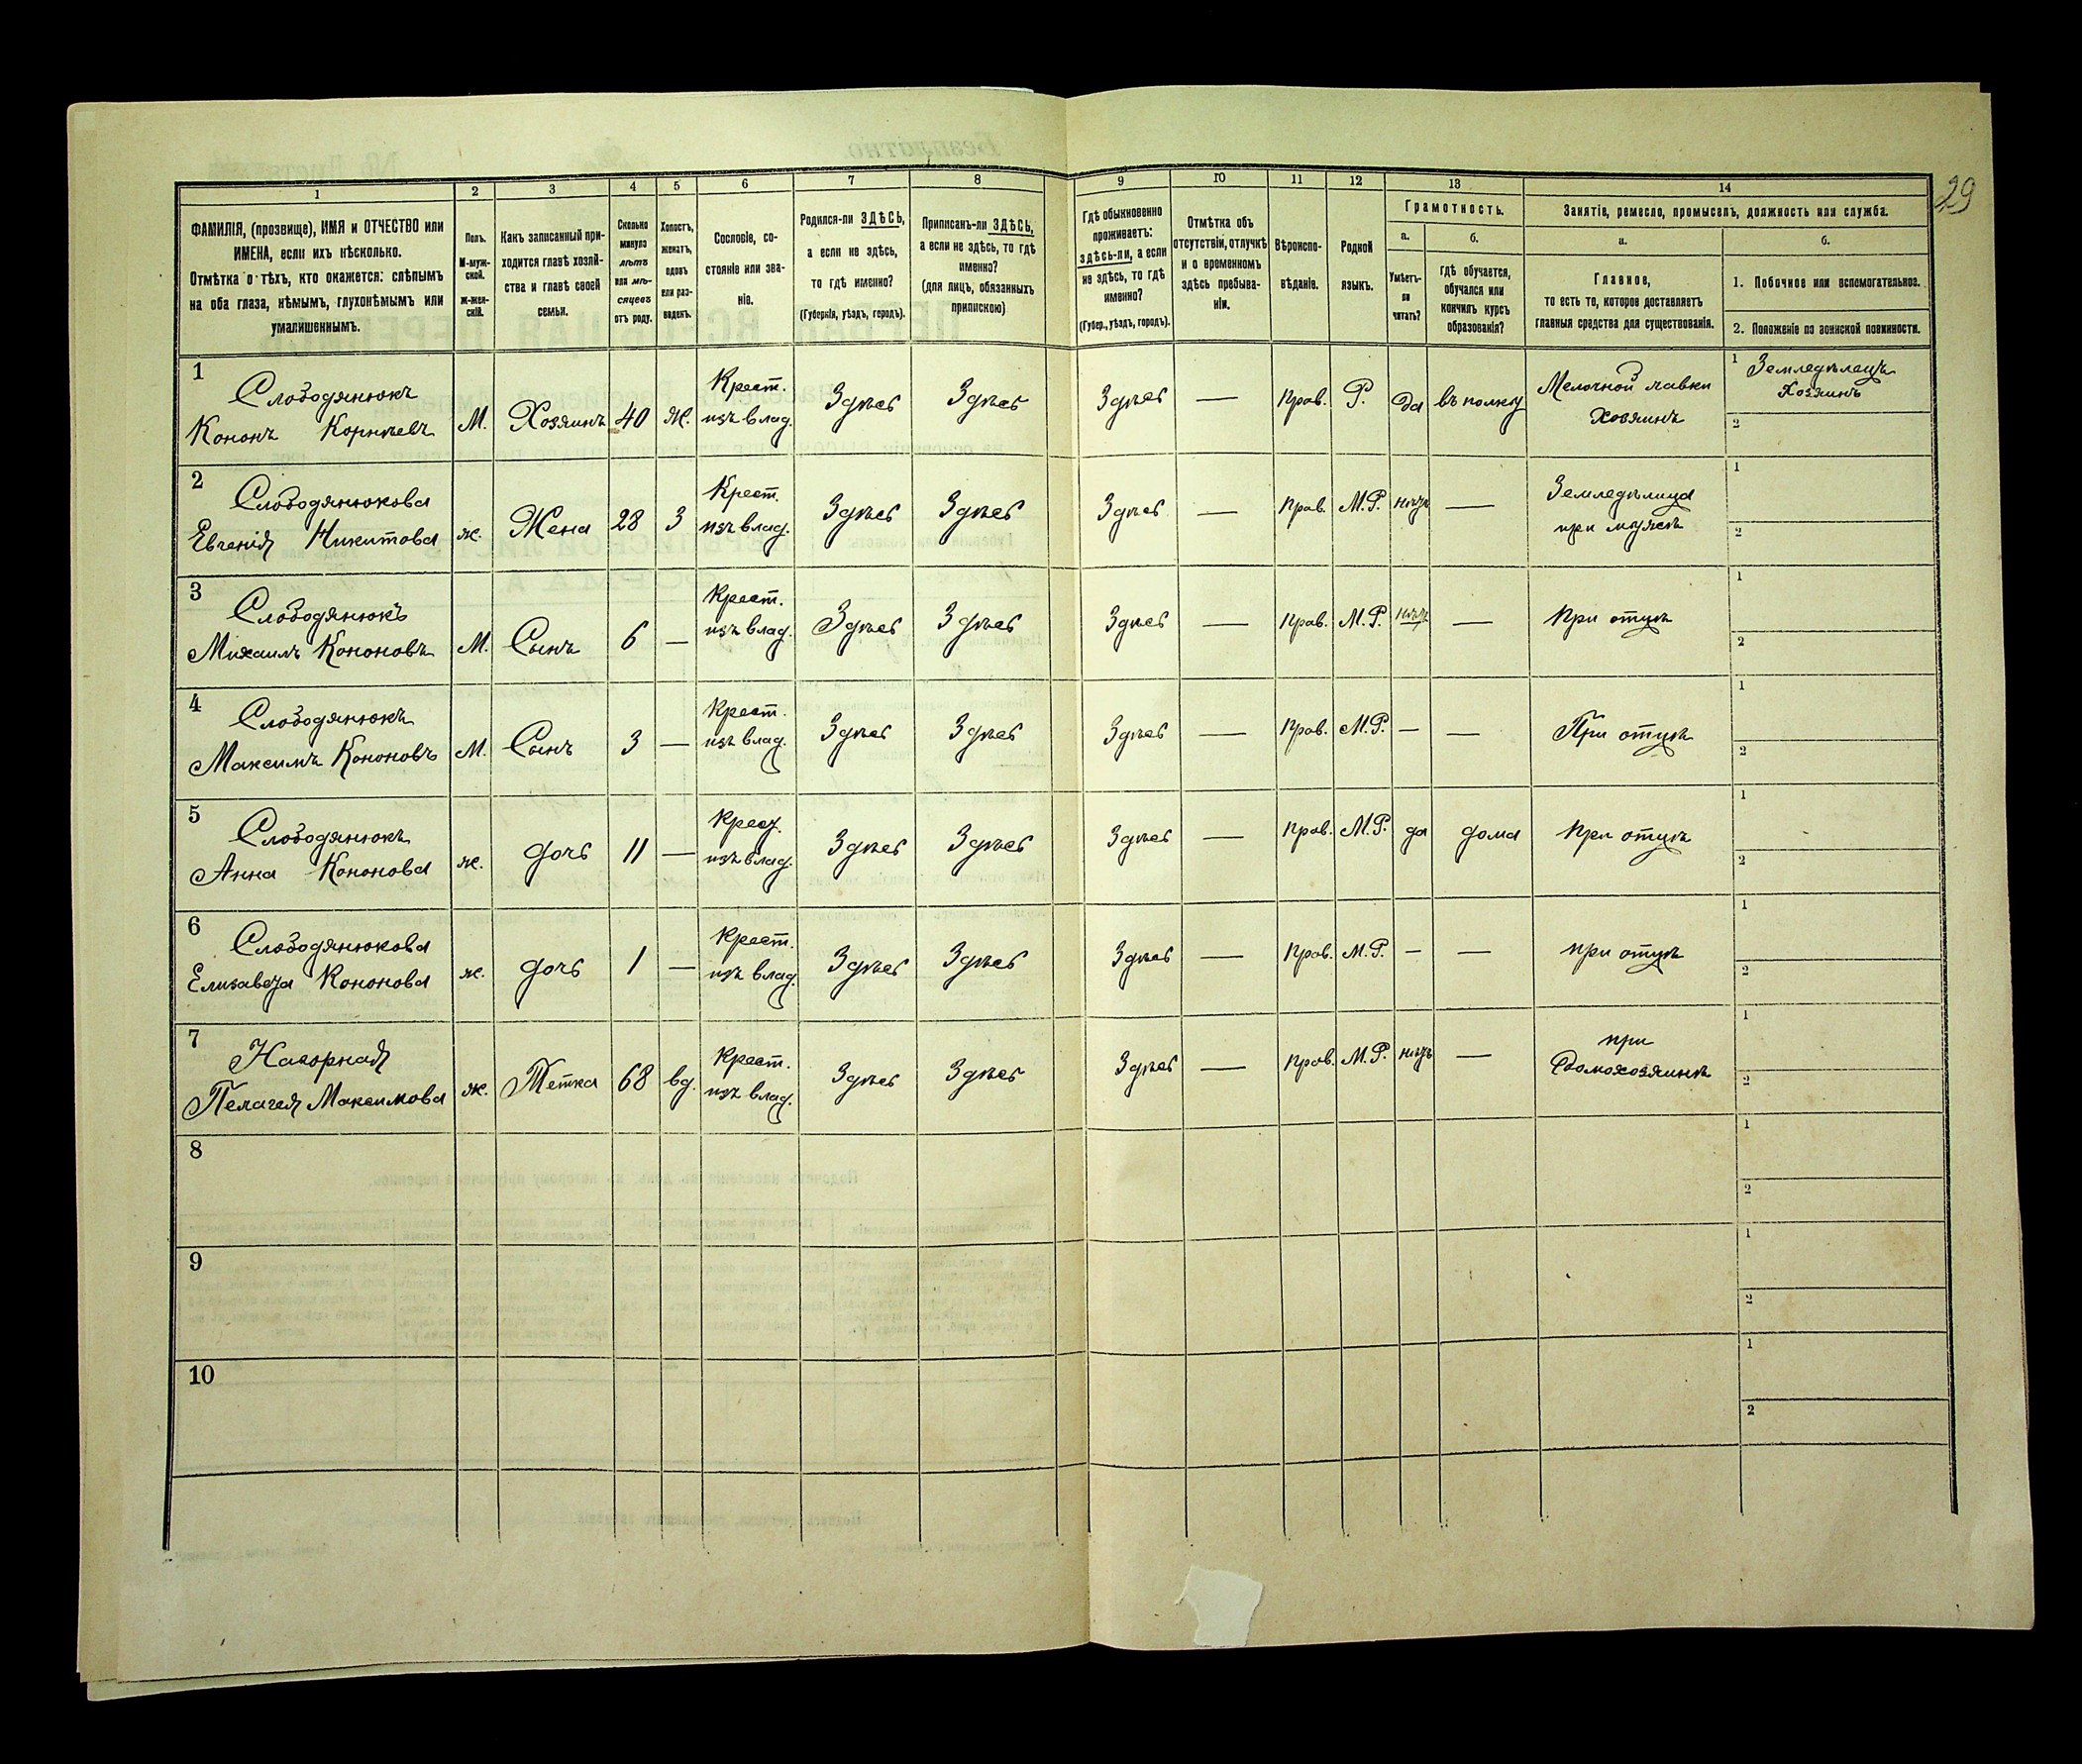 29
1
2
3
4
5
6
7
8
9
10
11
12
13
14
ФАМИЛІЯ, (прозвище), ИМЯ и ОТЧЕСТВО или
ИМЕНА, если ихъ нѣсколько.
Отмѣтка о тѣхъ, кто окажется: слѣпымъ
на оба глаза, нѣмымъ, глухонѣмымъ или
умалишеннымъ.
Полъ.
М-муж-
ской.
Ж-жен-
скій.
Какъ записанный при-
ходится главѣ хозяй-
ства и главѣ своей
семьи.
Сколько
минуло
лѣтъ
или мѣ-
сяцевъ
отъ роду.
Холостъ,
женатъ,
вдовъ
или раз-
веденъ.
Сословіе, со-
стояніе или зва-
ніе.
Родился-ли ЗДѢСЬ,
а если не здѣсь,
то гдѣ именно?
(Губернія, уѣздъ, городъ).
Приписанъ-ли ЗДѢСЬ,
а если не здѣсь, то гдѣ
именно?
(для лицъ, обязанныхъ
припискою)
Гдѣ обыкновенно
проживаетъ:
здѣсь-ли, а если
не здѣсь, то гдѣ
именно?
(Губер., уѣздъ, городъ).
Отмѣтка объ
отсутствіи, отлучкѣ
и о временномъ
здѣсь пребыва-
ніи.
Вѣроиспо-
вѣданіе.
Родной
языкъ.
Грамотность.
а.
Умѣетъ-
ли
читать?
б.
гдѣ обучается,
обучался или
кончилъ курсъ
образованія?
Занятіе, ремесло, промыселъ, должность или служба.
а.
Главное,
то есть то, которое доставляетъ
главныя средства для существованія.
б.
1. Побочное или вспомогательное.
2. Положеніе по воинской повинности.
1
Слободянюкъ
Кононъ Корнѣевъ
М.
Хозяинъ
40
Ж.
Крест.
изъ влад.
Здѣсь
Здѣсь
Здѣсь
—
Прав.
Р.
Да
въ полку
Мелочной лавки
Хозяинъ
1 Земледѣлецъ
Хозяинъ
2
2
Слободянюкова
Евгенія Никитова
ж.
Жена
28
З
Крест.
изъ влад.
Здѣсь
Здѣсь
Здѣсь
—
Прав.
М.Р.
нѣтъ
—
Земледѣлица
при мужѣ
1
2
3
Слободянюкъ
Михаилъ Кононовъ
М.
Сынъ
6
—
Крест.
изъ влад.
Здѣсь
Здѣсь
Здѣсь
—
Прав.
М.Р.
нѣтъ
—
При отцѣ
1
2
4
Слободянюкъ
Максимъ Кононовъ
М.
Сынъ
3
—
Крест.
изъ влад.
Здѣсь
Здѣсь
Здѣсь
—
Прав.
М.Р.
—
—
При отцѣ
1
2
5
Слободянюкъ
Анна Кононова
ж.
дочь
11
—
Крест.
изъ влад.
Здѣсь
Здѣсь
Здѣсь
—
Прав.
М.Р.
да
дома
При отцѣ
1
2
6
Слободянюкова
Елизавета Кононова
ж.
дочь
1
—
Крест.
изъ влад.
Здѣсь
Здѣсь
Здѣсь
—
Прав.
М.Р.
—
—
при отцѣ
1
2
7
Нагорная
Пелагея Максимова
ж.
Тетка
68
вд.
Крест.
изъ влад.
Здѣсь
Здѣсь
Здѣсь
—
Прав.
М.Р.
нѣтъ
—
при
Домохозяинѣ
1
2
8
1
2
9
1
2
10
1
2